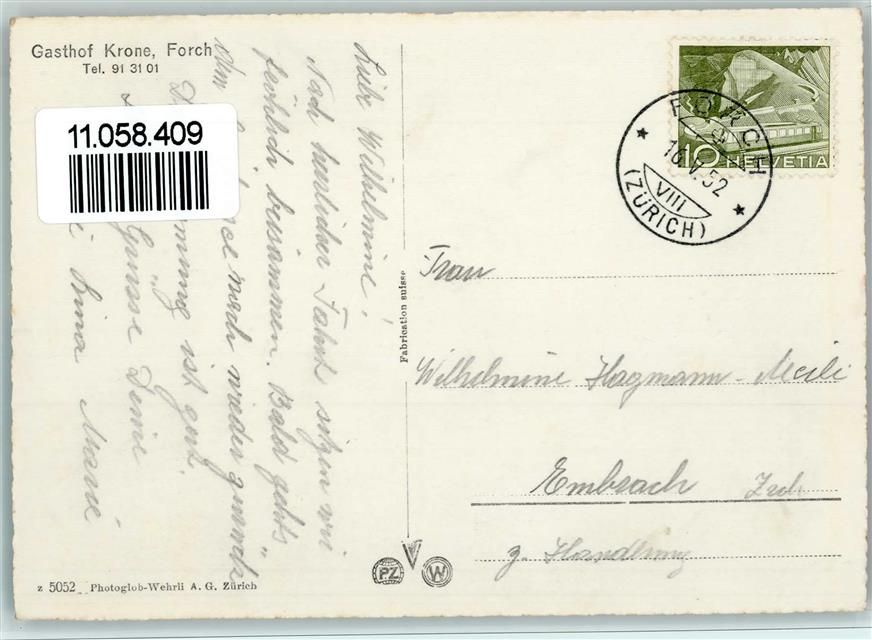 Gasthof Krone, Forch
Tel. 91 31 01
11.058.409
Liebe Wilhelmine!
Nach herrlicher Fahrt sitzen wir
fröhlich beisammen. Bald gehts
wieder zurück
ist gut.
Grüsse Deine
Lina Marie
Fabrication suisse
HELVETIA
10
FORCH
16.V.52
VIII
(ZÜRICH)
Frau
Wilhelmine Hagmann-Meili
Embrach Zch.
z. Handlung
PZ W
z 5052 Photoglob-Wehrli A. G. Zürich